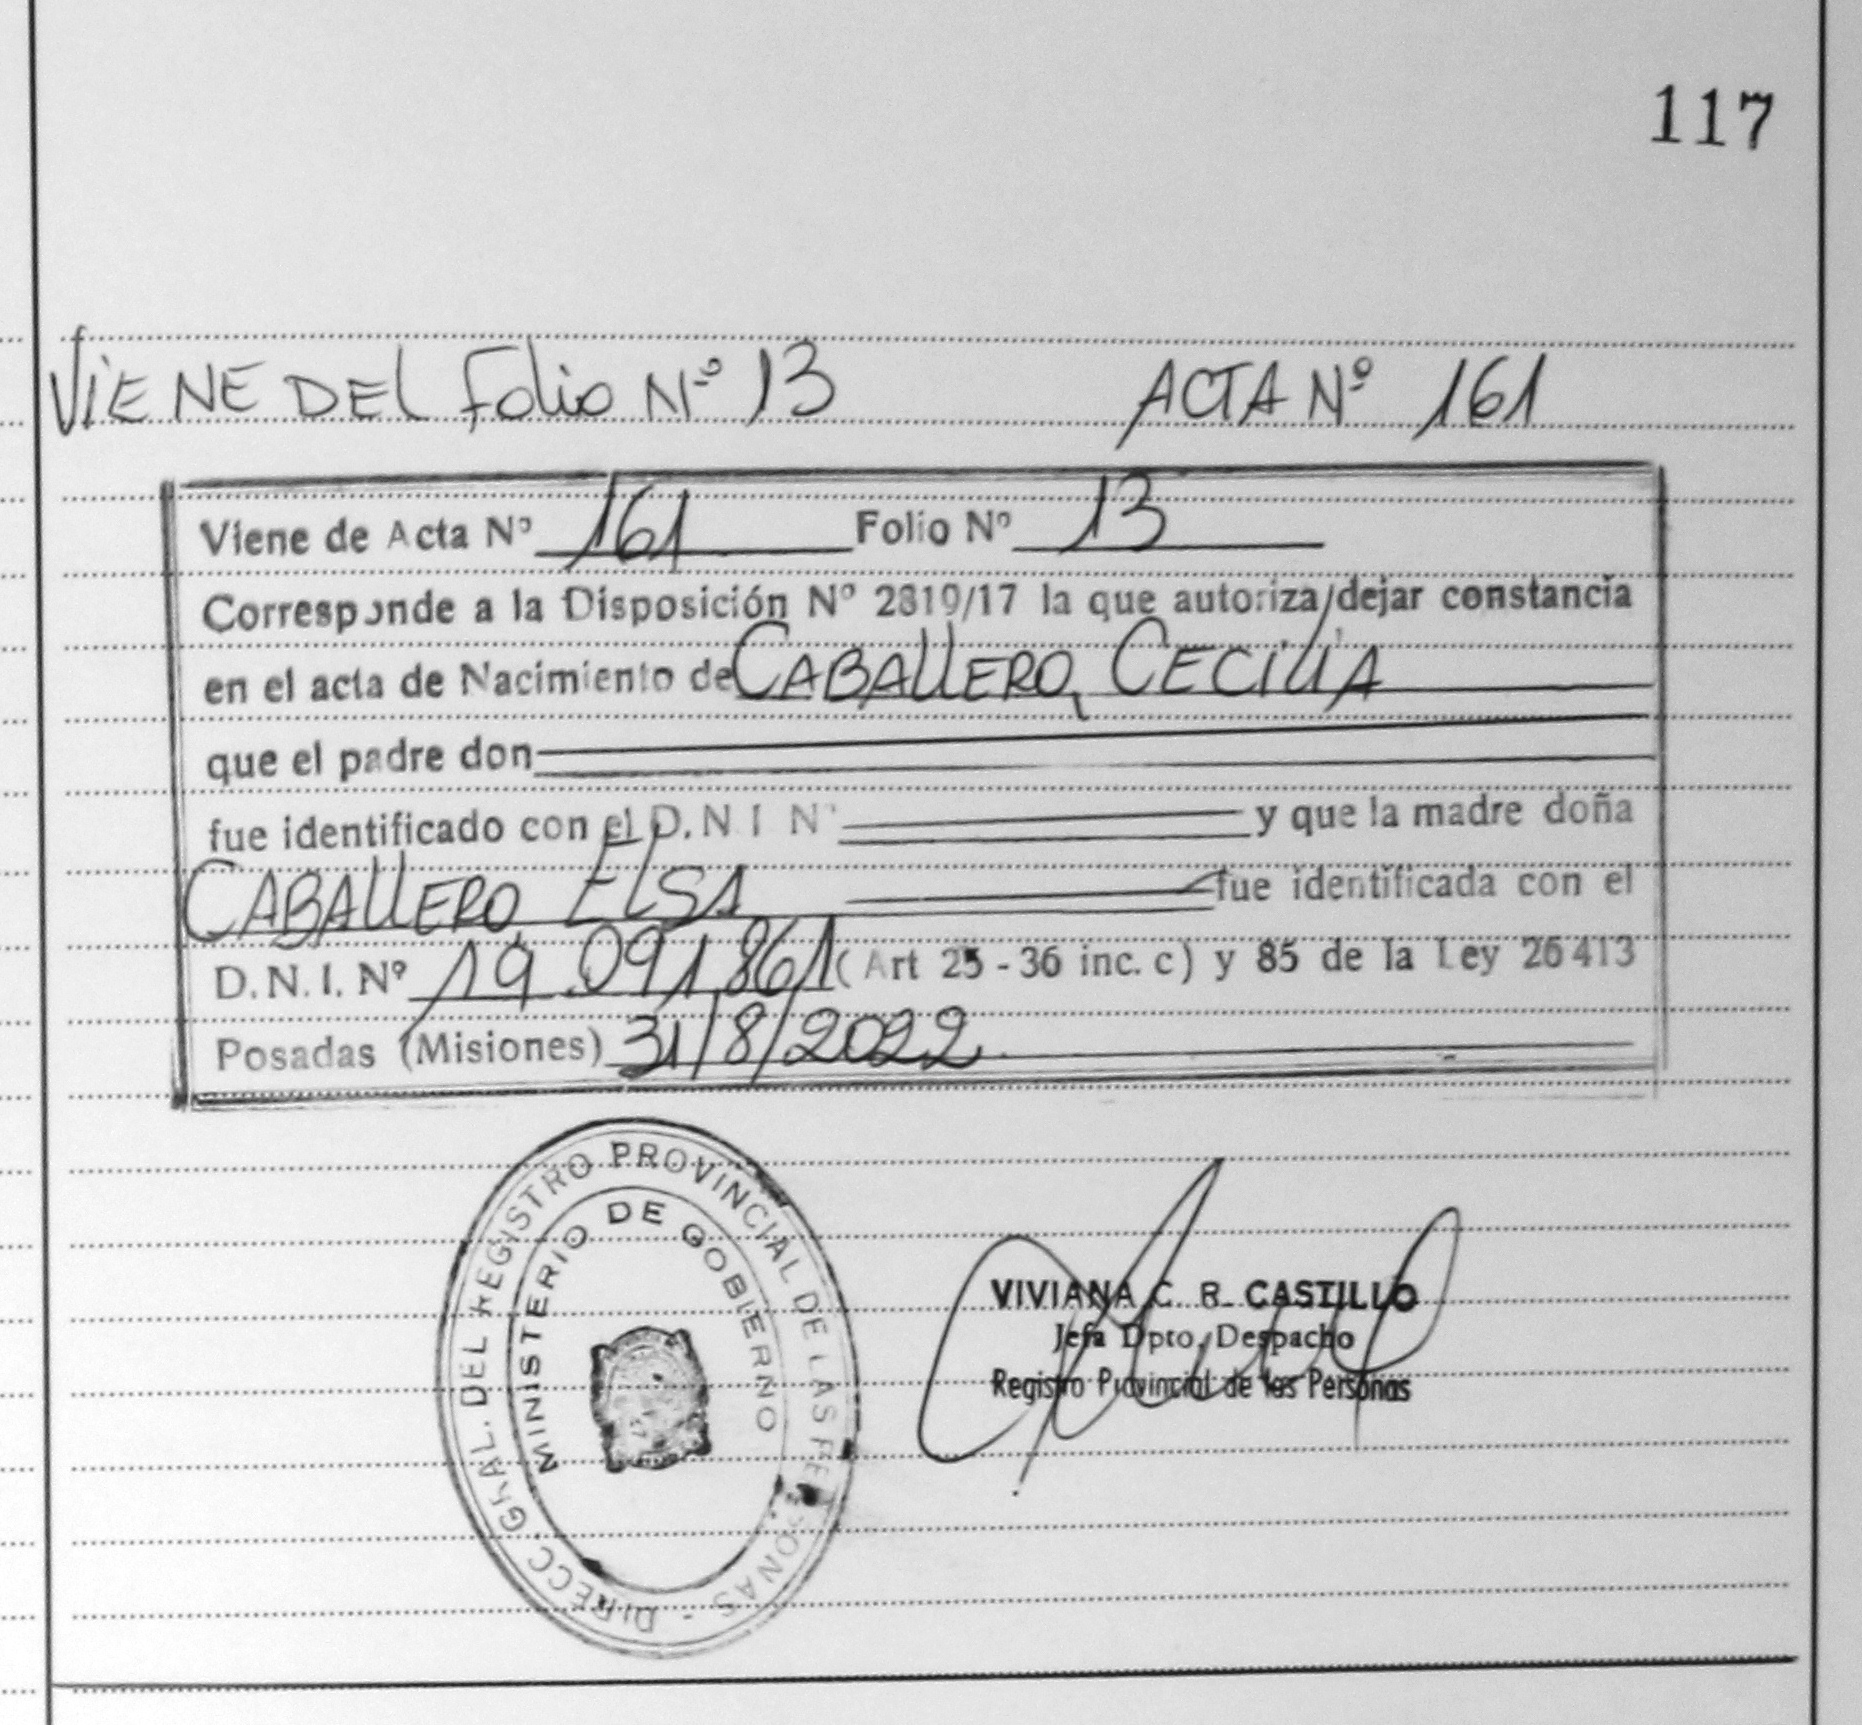 117
VIENE DEL Folio Nº 13 ACTA Nº 161
Viene de Acta Nº 161 Folio Nº 13
Corresponde a la Disposición Nº 2819/17 la que autoriza dejar constancia
en el acta de Nacimiento de CABALLERO, CECILIA
que el padre don
fue identificado con el D.N.I Nº y que la madre doña
CABALLERO, ELSA fue identificada con el
D.N.I. Nº 19.091.861 (Art 25-36 inc. c) y 85 de la Ley 26413
Posadas (Misiones) 31/8/2022
DIRECC. GRAL. DEL REGISTRO PROVINCIAL DE LAS PERSONAS -
MINISTERIO DE GOBIERNO
VIVIANA C. R. CASTILLO
Jefa Dpto. Despacho
Registro Provincial de las Personas